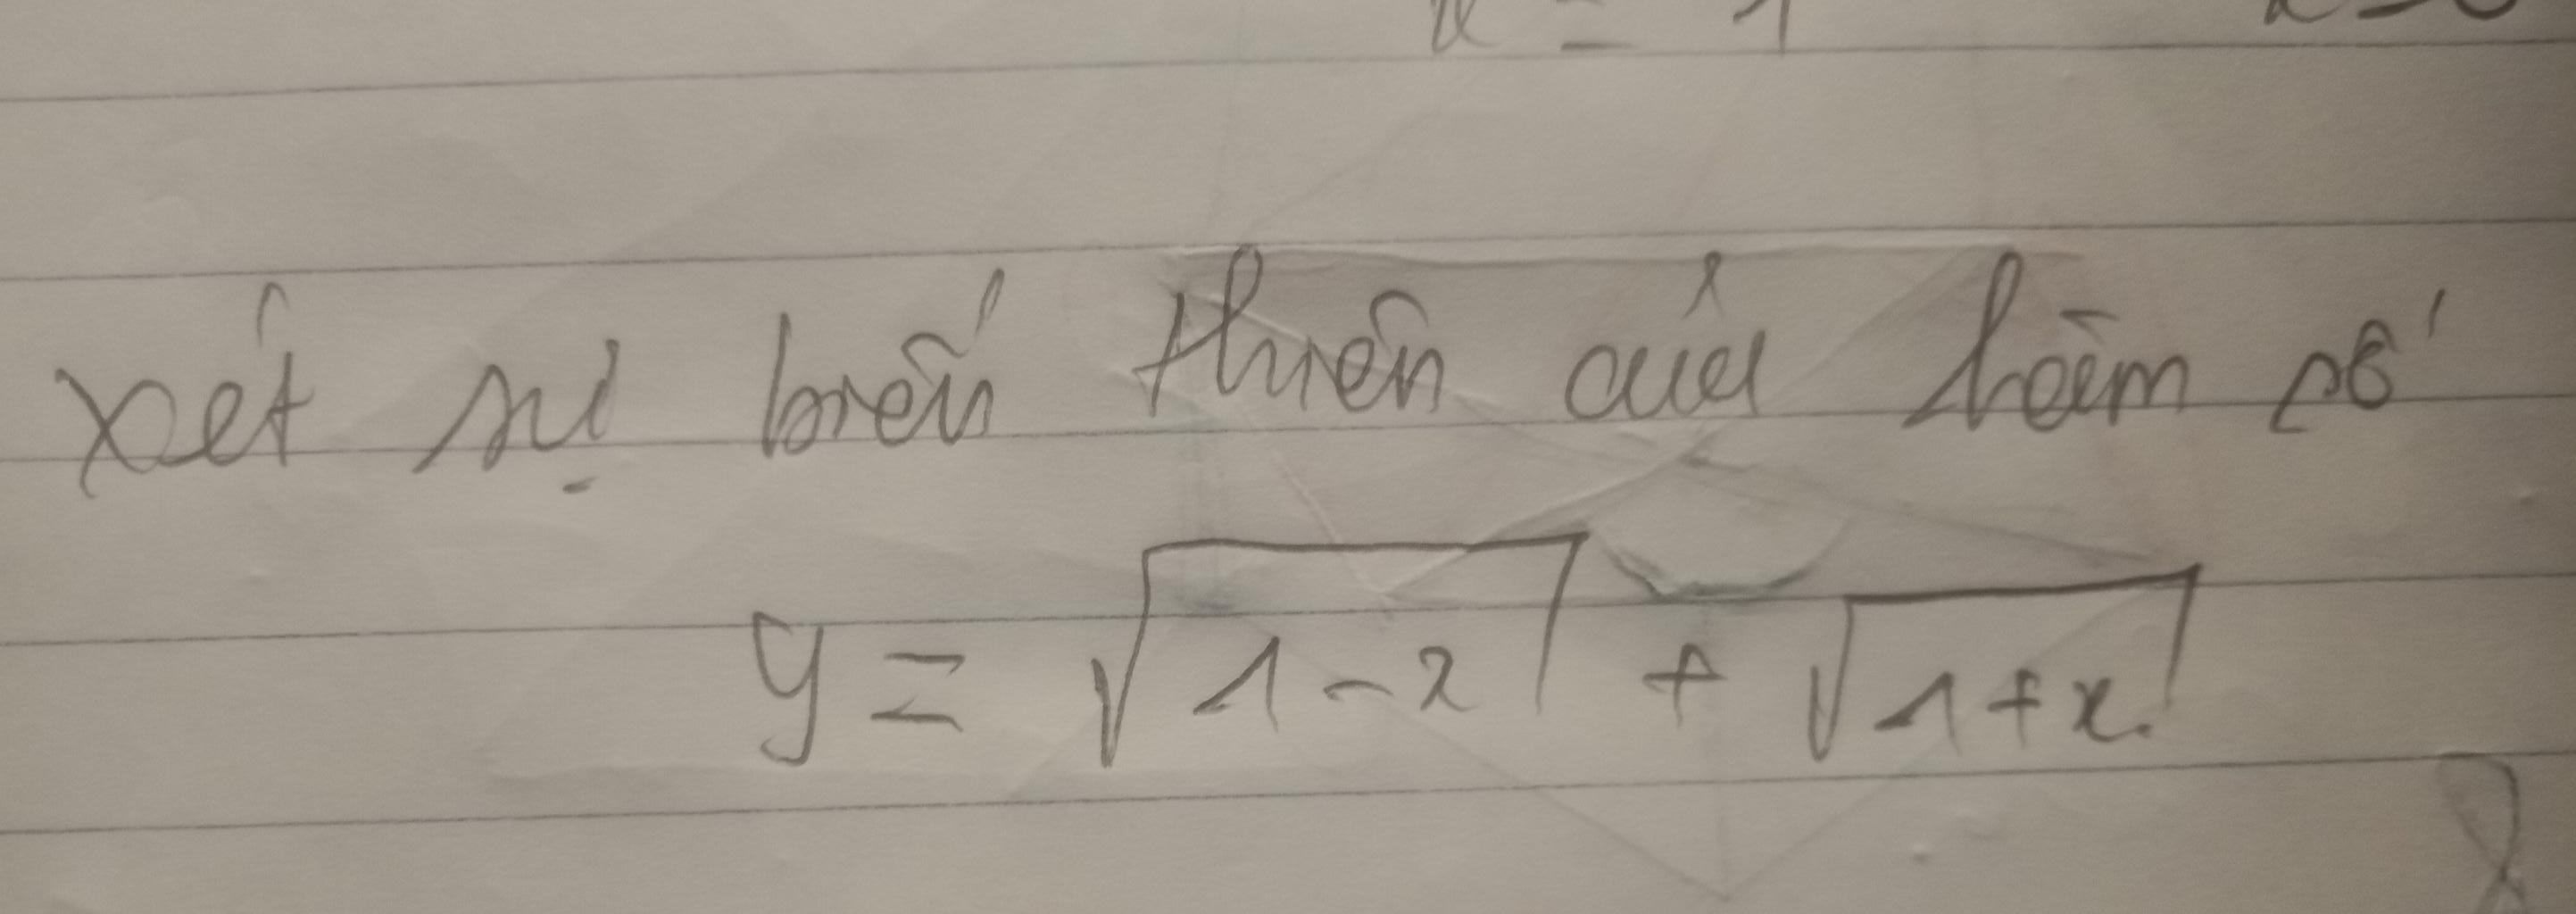 xét sự biến thiên của hàm số
y = √1-x + √1+x